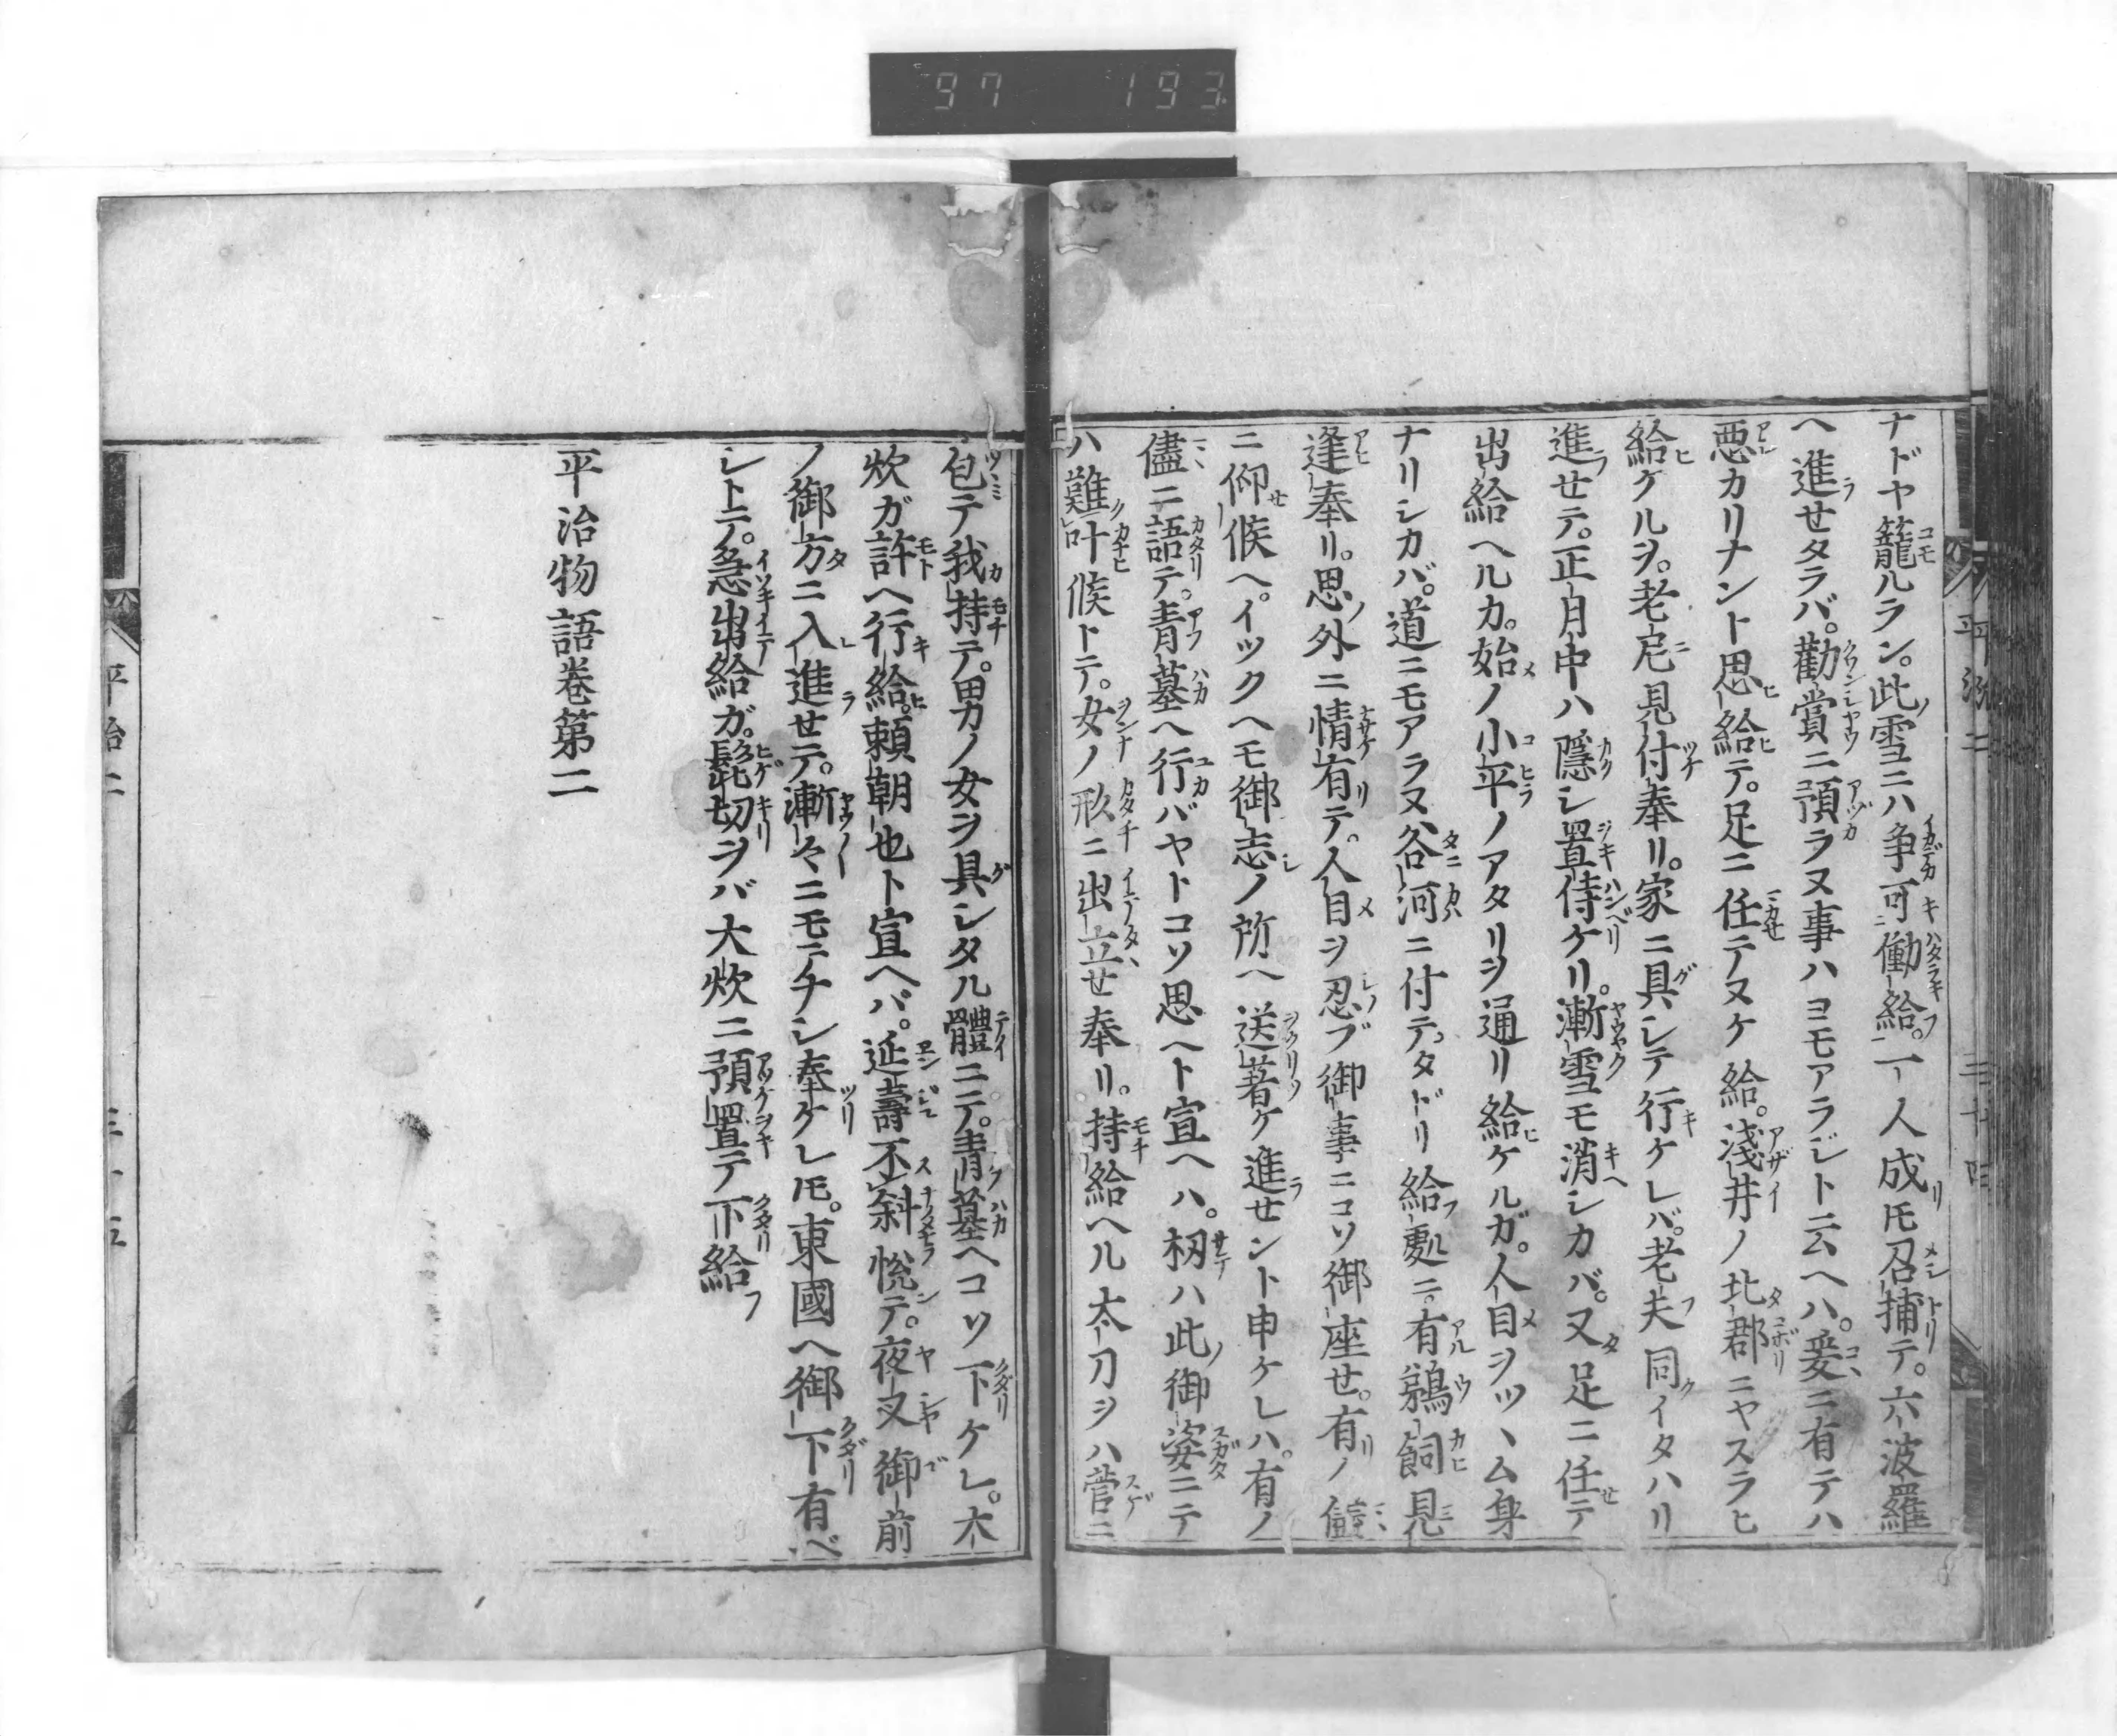 97 193
ナドヤ籠ルラン。此雪ニハ争可働給。一人成𪜈召捕テ。六波羅
ヘ進せタラバ。勸賞ニ預ラヌ事ハヨモアラジト云ヘハ。爰ニ有テハ
悪カリナント思給テ。足ニ任テヌケ給。淺井ノ北郡ニヤスラヒ
給ケルヲ。老尼見付奉リ。家ニ具シテ行ケレバ。老夫同イタハリ
進せテ。正月中ハ隱シ置侍ケリ。漸雪モ消シカバ。又足ニ任テ
出給ヘルカ。始ノ小平ノアタリヲ通リ給ケルガ。人目ヲツヽム身
ナリシカバ。道ニモアラヌ谷河ニ付テ。タドリ給處ニ。有鵜飼見
逢奉リ。思外ニ情有テ。人目ヲ忍ブ御事ニコソ御座せ。有ノ儘
ニ仰候ヘ。イツクヘモ御志ノ所ヘ送著ケ進せント申ケレハ。有ノ
儘ニ語テ。青墓ヘ行バヤトコソ思ヘト宣ヘハ。扨ハ此御姿ニテ
ハ難叶候トテ。女ノ形ニ出立せ奉リ。持給ヘル太刀ヲハ菅ニ
包テ我持テ。男ノ女ヲ具シタル體ニテ。青墓ヘコソ下ケレ。大
炊ガ許ヘ行給。頼朝也ト宣ヘバ。延壽不斜悦テ。夜叉御前
ノ御方ニ入進せテ。漸々ニモテナシ奉ケレ𪜈。東國ヘ御下有ベ
シトテ。急出給ガ。髭切ヲバ大炊ニ預置テ下給
平治物語卷第二
平治二